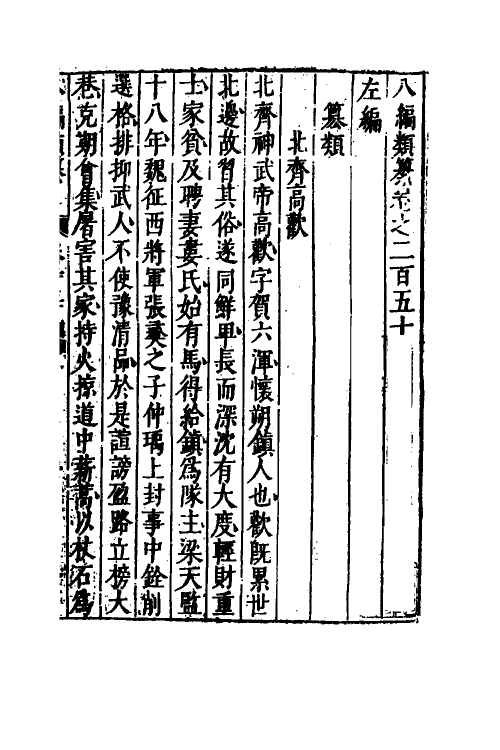 八編類纂卷之二百五十
左編
篡類
北齊高歡
北齊神武帝高歡字賀六渾懷朔鎮人也歡旣累世
北邊故習其俗遂同鮮卑長而深沈有大度輕財重
士家貧及聘妻婁氏始有馬得給鎮爲隊主梁天監
十八年魏征西將軍張彝之子仲瑀上封事中銓削
選格排抑武人不使豫清品於是諠謗盈路立榜大
巷克期會集屠害其家持火掠道中薪蒿以杖石爲